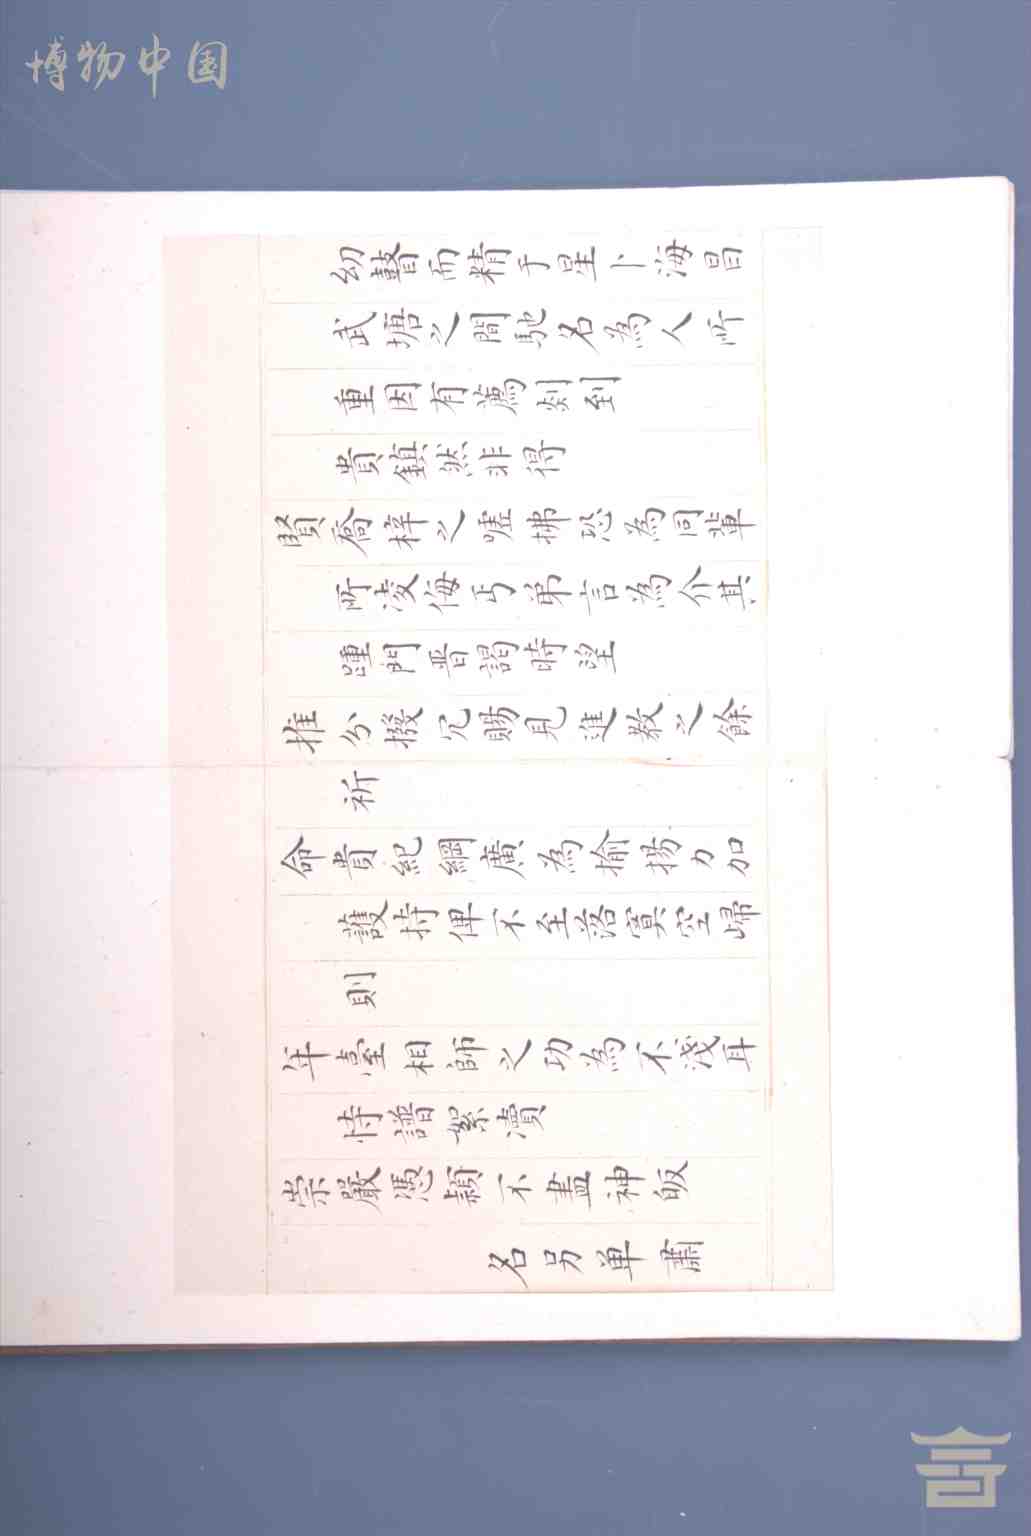 博物中国
幼瞽而精于星卜海昌
武塘之間馳名為人所
重因有薦剡到
貴鎮然非得
賢喬梓之噓拂恐為同輩
所凌侮丐弟言為介其
踵門晋謁時望
推分撥冗賜見進教之餘
祈
命貴紀綱廣為揄揚力加
護持俾不至落寞空歸
則
年臺相師之功為不淺耳
恃譜絮瀆
崇嚴憑穎不盡神皈
名另单肅